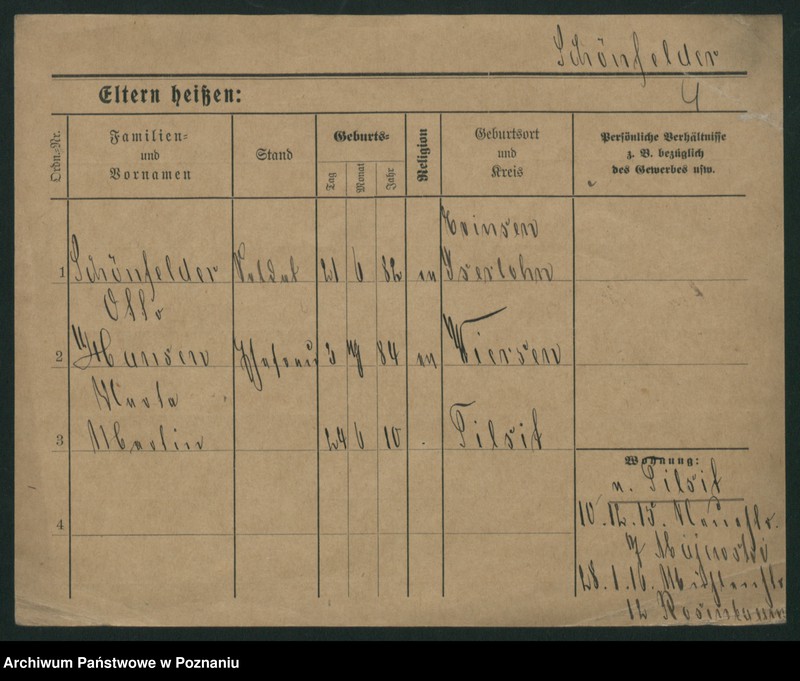 Schönfelder
4
Eltern heißen:
Ordn.-Nr.
Familien-
und
Vornamen
Stand
Geburts-
Tag
Monat
Jahr
Religion
Geburtsort
und
Kreis
Persönliche Verhältnisse
z. B. bezüglich
des Gewerbes usw.
1 Schönfelder Soldat 21 6 82 ev Iserlohn
Otto
2 Hansen Ehefrau 3 84 ev Viersen
3 24 6 10 Tilsit
Wohnung:
n. Tilsit
10.12.15.
7
28.1.16.
12
4
Archiwum Państwowe w Poznaniu